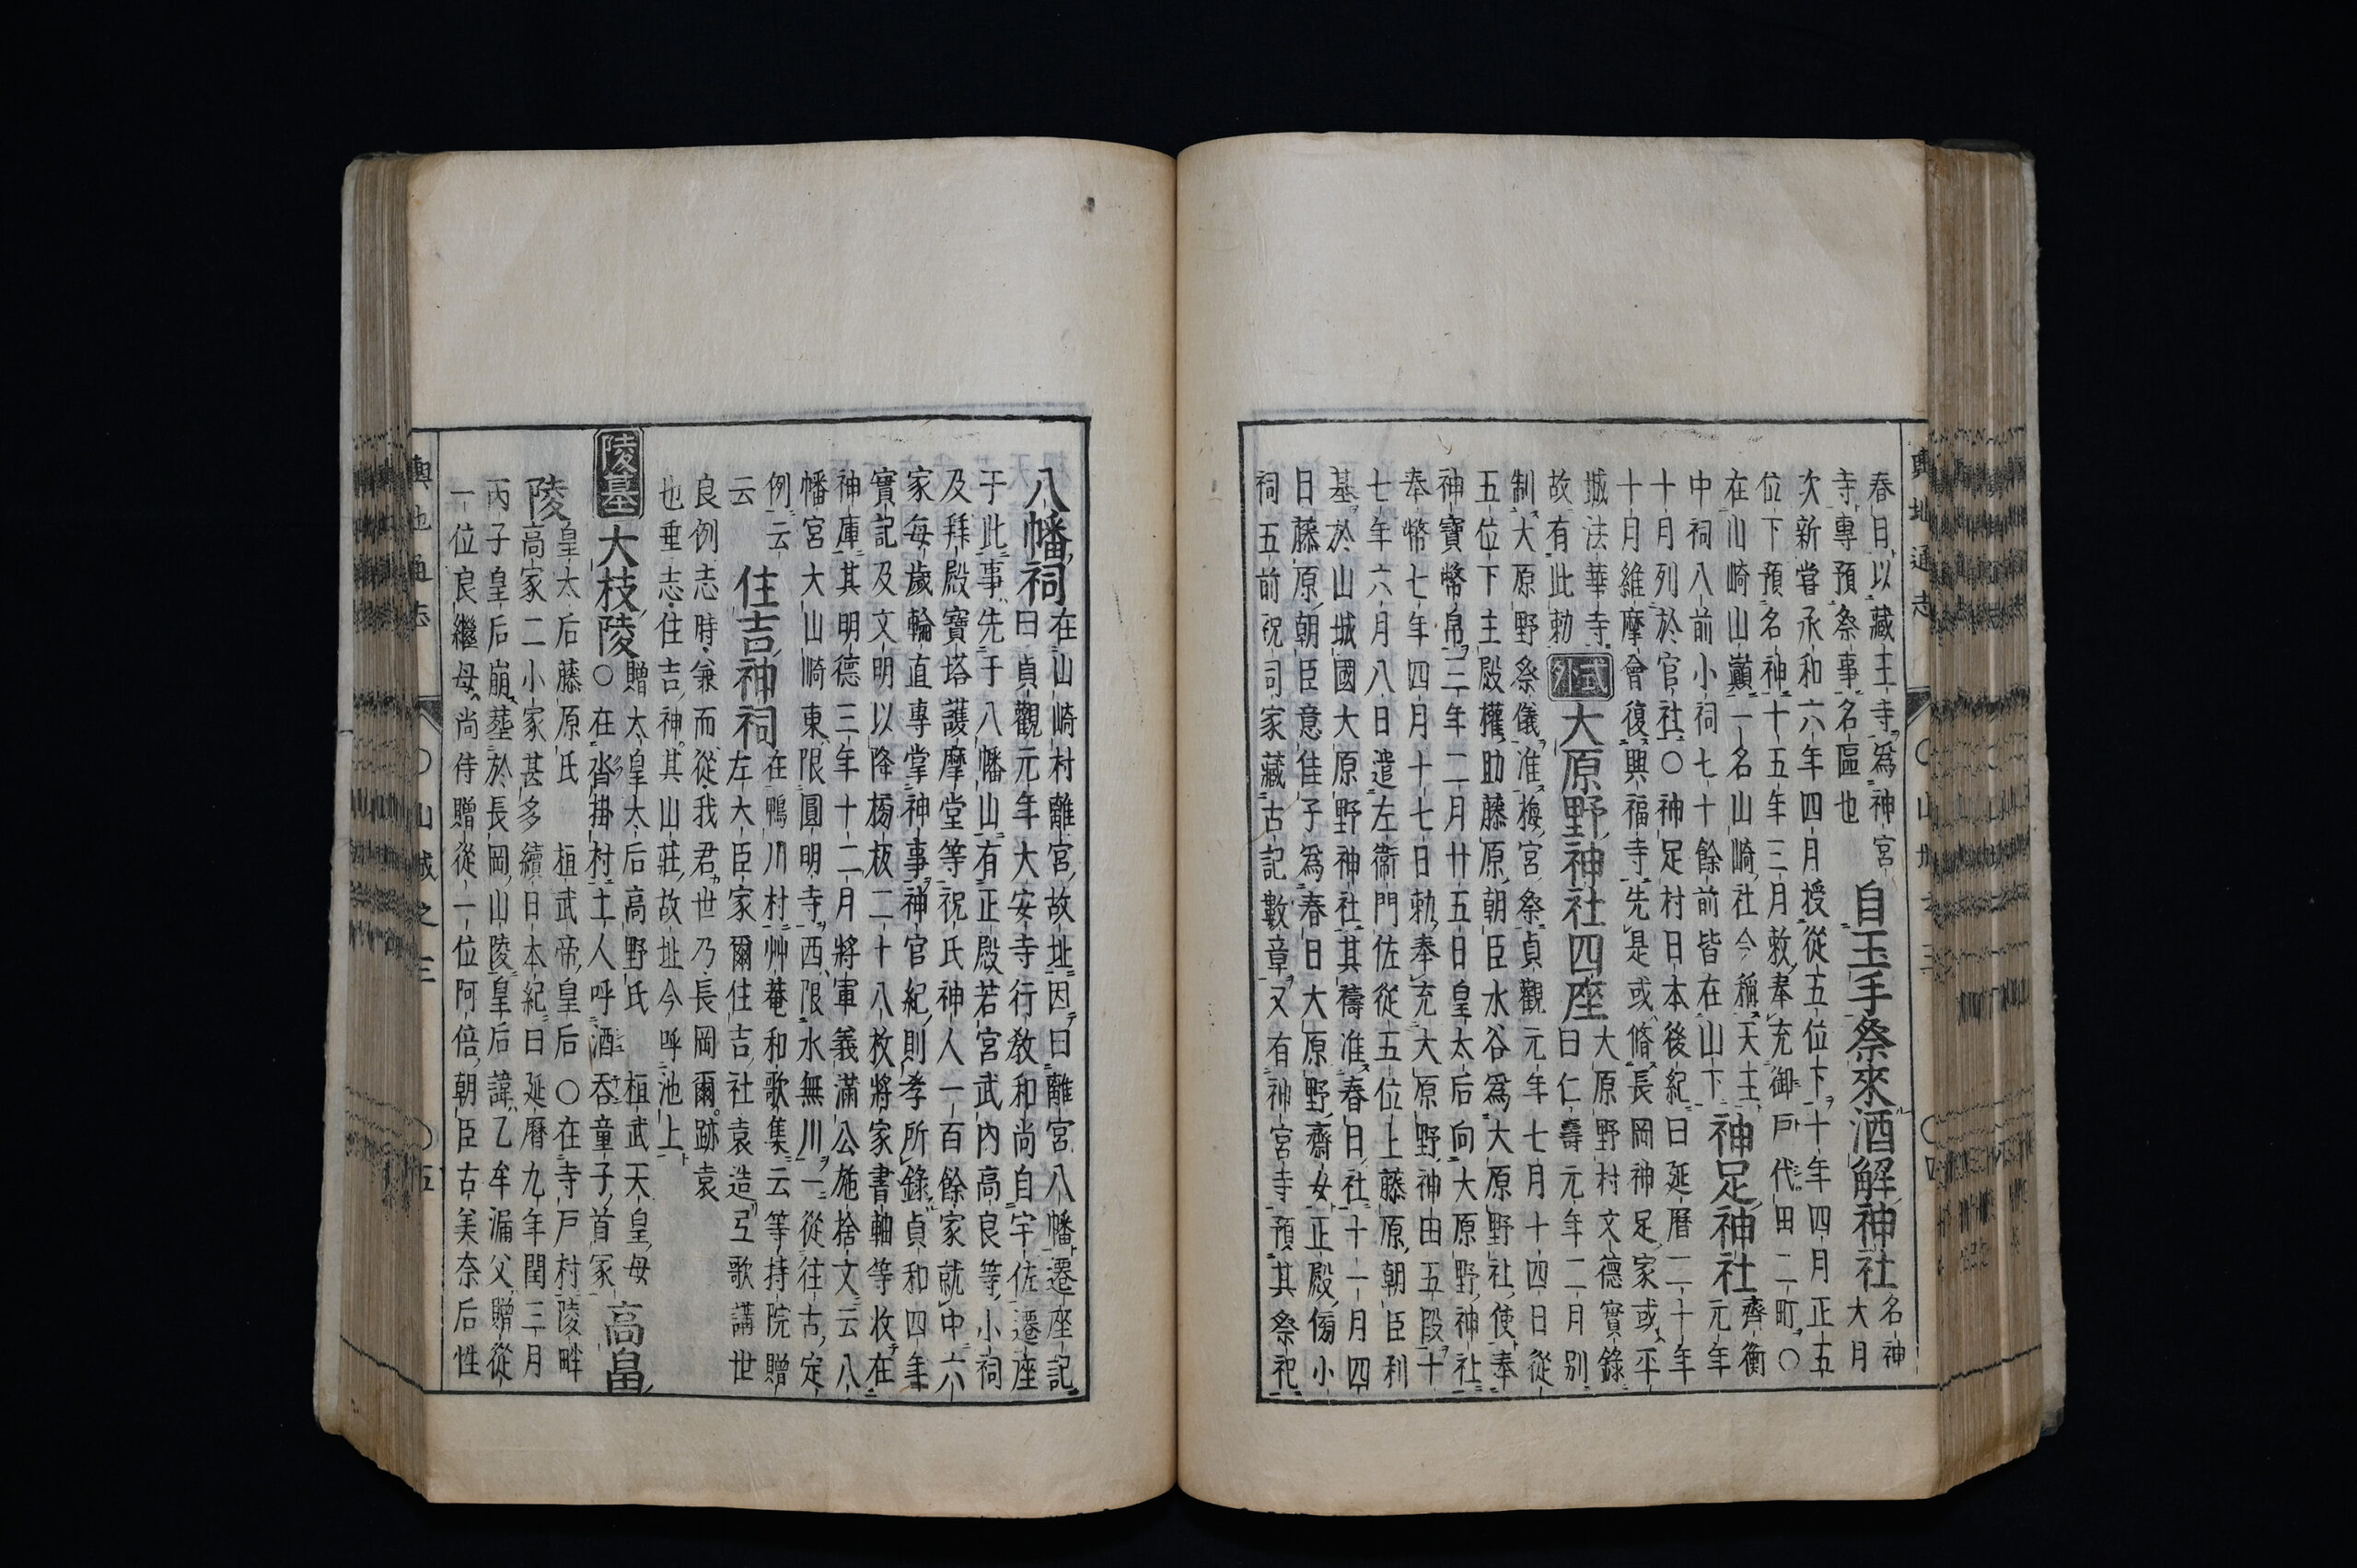 輿地通志 〇山城之三 〇四
春日以藏王寺爲神宮
寺專預祭事名區也
自玉手祭來酒解神社
名神
大月
次新嘗承和六年四月授從五位下十年四月正五
位下預名神十五年三月敕奉充御戶代田二町〇
在山崎山巔一名山崎社今稱天王
中祠八前小祠七十餘前皆在山下
神足神社
齊衡
元年
十月列於官社〇神足村日本後紀曰延曆二十年
十月維摩會復興福寺先是或脩長岡神足家或平
城法華寺
故有此勅
式外
大原野神社四座
大原野村文德實錄
曰仁壽元年二月別
制大原野祭儀准梅宮祭貞觀元年七月十四日從
五位下主殿權助藤原朝臣水谷爲大原野社使奉
神寶幣帛三年二月廿五日皇太后向大原野神社
奉幣七年四月十七日勅奉充大原野神田五段十
七年六月八日遣左衞門佐從五位上藤原朝臣利
基於山城國大原野神社其禱准春日社十一月四
日藤原朝臣意佳子爲春日大原野齋女正殿傍小
祠五前祝司家藏古記數章又有神宮寺預其祭祀
八幡祠
在山崎村離宮故址因曰離宮八幡遷座記
曰貞觀元年大安寺行敎和尚自宇佐遷座
于此事先于八幡山有正殿若宮武內高良等小祠
及拜殿寶塔護摩堂等祝氏神人一百餘家就中六
家每歲輪直專掌神事神官紀則孝所錄貞和四年
實記及文明以降榜板二十八枚將家書軸等收在
神庫其明德三年十二月將軍義滿公施捨文云八
幡宮大山崎東限圓明寺西限水無川一從往古定
例云
云
住吉神祠
在鴨川村艸菴和歌集云等持院贈
左大臣家爾住吉社袁造弖歌講世
良例志時兼而從我君世乃長岡爾跡袁
也垂志住吉神其山莊故址今呼池上
陵墓
大枝陵
贈太皇太后高野氏 桓武天皇母
〇在沓掛村土人呼酒吞童子首冢
高畠
陵
皇太后藤原氏 桓武帝皇后〇在寺戶村陵畔
高冢二小冢甚多續日本紀曰延曆九年閏三月
丙子皇后崩葬於長岡山陵皇后諱乙牟漏父贈從
一位良繼母尚侍贈從一位阿倍朝臣古美奈后性
輿地通志 〇山城之三 〇五